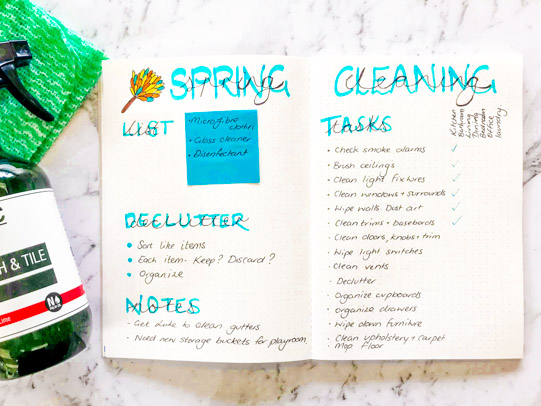 SPRING
spring
LIST
list
• Microfibre
cloths
• Glass cleaner
• Disenfectant
DECLUTTER
declutter
• Sort like items
• Each item - Keep? Discard?
• Organize
NOTES
notes
- Get dude to clean gutters
- Need new storage buckets for playroom
CLEANING
cleaning
TASKS
tasks
Kitchen
Bathroom
Living
Dining
Bedroom
Office
laundry
• Check smoke alarms ✓
• Brush ceilings
• Clean light fixtures ✓
• Clean windows + surrounds ✓
• Wipe walls Dust art ✓
• Clean trims + baseboards ✓
• Clean doors, knobs + trim
• Wipe light switches
• Clean vents
• Declutter
• Organize cupboards
• organize drawers
• Wipe down furniture
• Clean upholstery + carpet
• Mop floor
H & TILE